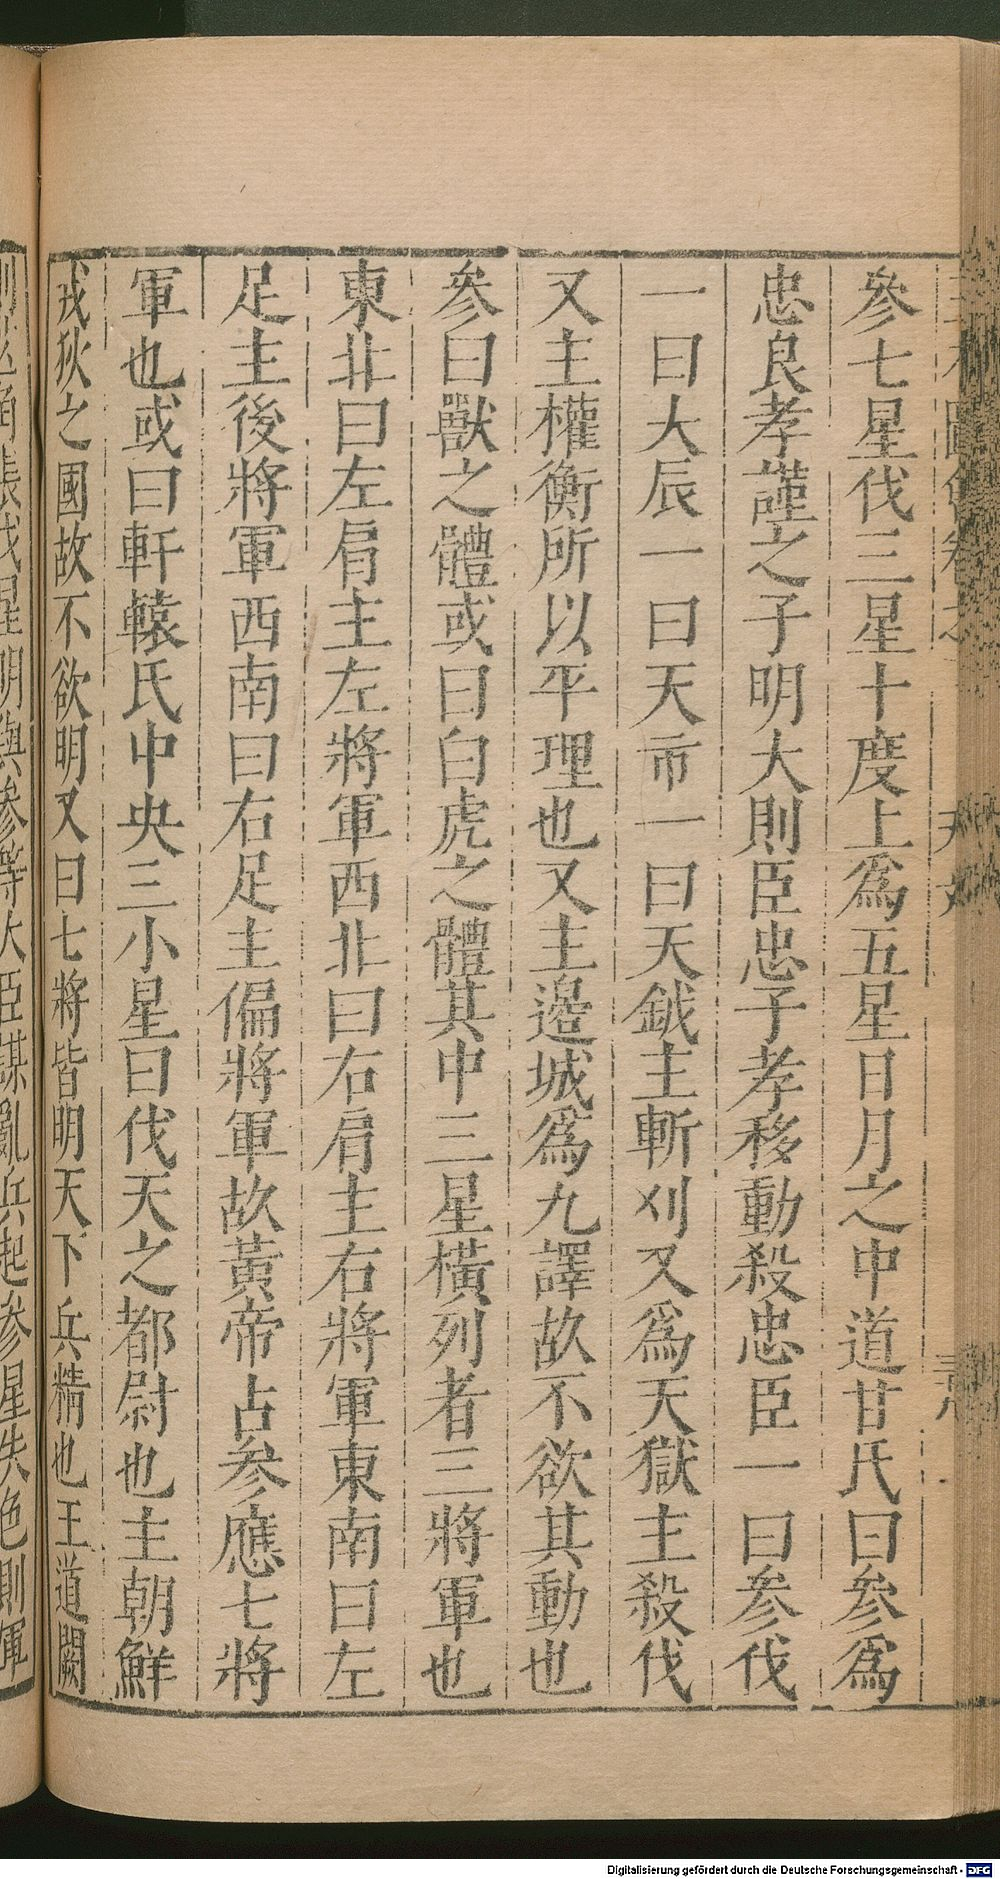 參七星伐三星十度上爲五星日月之中道甘氏曰參爲
忠良孝謹之子明大則臣忠子孝移動殺忠臣一曰參伐
一曰大辰一曰天市一曰天鉞主斬刈又爲天獄主殺伐
又主權衡所以平理也又主邊城爲九譯故不欲其動也
參曰獸之體或曰白虎之體其中三星橫列者三將軍也
東北曰左肩主左將軍西北曰右肩主右將軍東南曰左
足主後將軍西南曰右足主偏將軍故黃帝占參應七將
軍也或曰軒轅氏中央三小星曰伐天之都尉也主朝鮮
戎狄之國故不欲明又曰七將皆明天下兵精也王道闕
則 角張伐星明與參等大臣謀亂兵起參星失色則軍
Digitalisierung gefördert durch die Deutsche Forschungsgemeinschaft - DFG